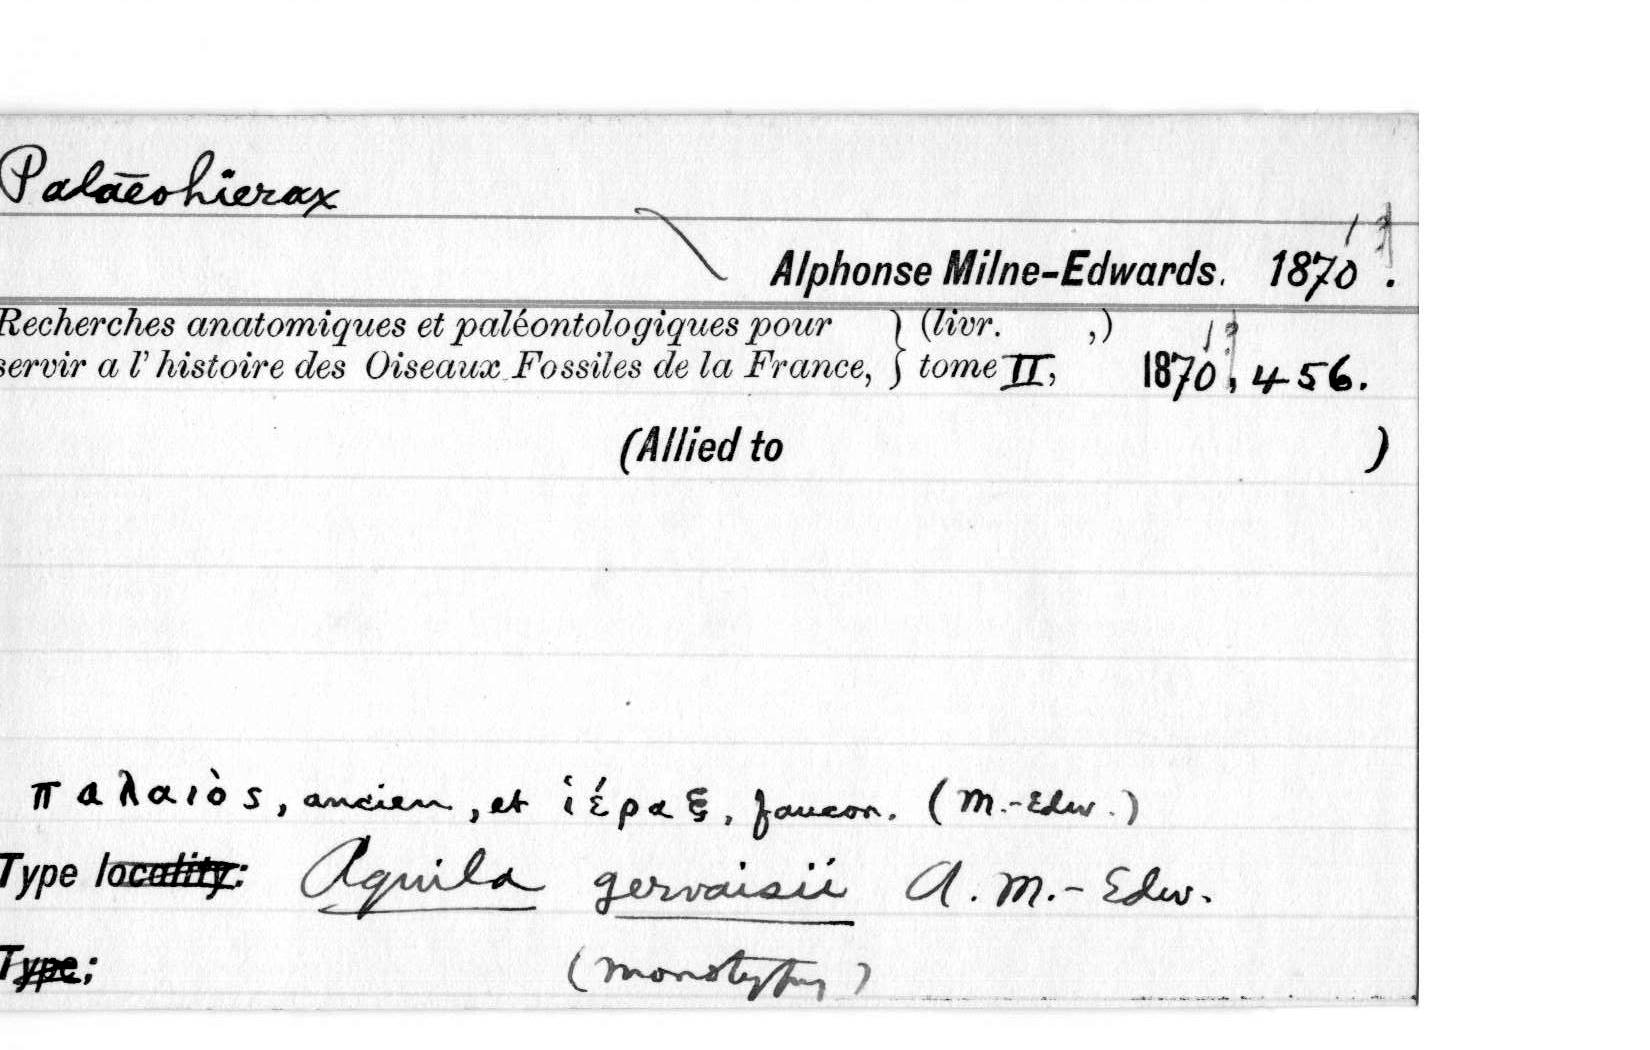 Palaeohierax
Alphonse Milne-Edwards. 1870 1?.
Recherches anatomiques et paléontologiques pour } (livr. ,)
servir a l' histoire des Oiseaux Fossiles de la France, } tome II, 1870 1?, 456.
(Allied to )
παλαιὸς, ancien, et ἱέραξ, faucon. (M.-Edw.)
Type locality: Aquila gervaisii A. M.-Edw.
Type: (monotypy)